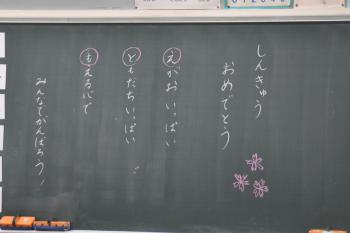 しんきゅう
おめでとう
えがおいっぱい
ともだちいっぱい
もえる心で
みんなでがんばろう！